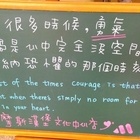 很多時候,勇氣
是心中完全沒空間
納恐懼的那個時刻
st of the times courage is that
when there simply no room for
in your heart.